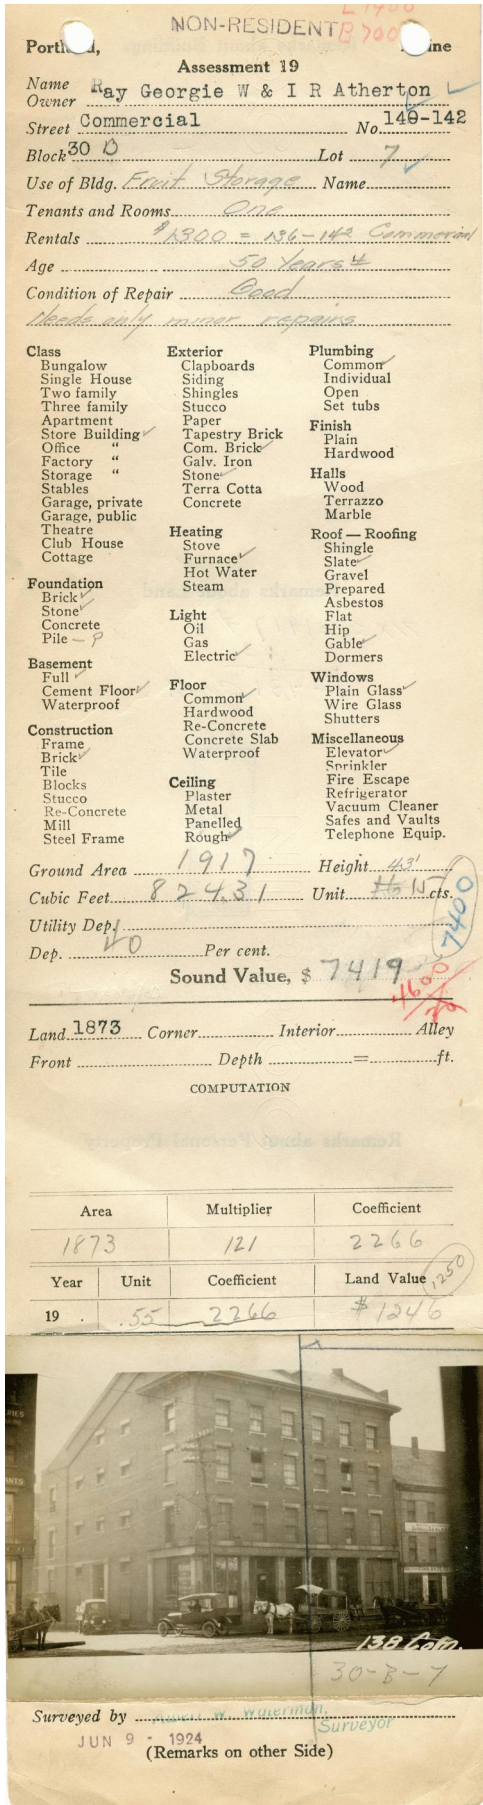 L 1450
NON-RESIDENT B 700
Portland, Maine
Assessment 19
Name
Owner Ray Georgie W & I R Atherton
Street Commercial No. 140-142
Block 30 B Lot 7
Use of Bldg. Fruit Storage Name
Tenants and Rooms One
Rentals $1300 = 136-142 Commercial
Age 50 Years ±
Condition of Repair Good
Needs only minor repairs
Class
Bungalow
Single House
Two family
Three family
Apartment
Store Building ✓
Office "
Factory "
Storage "
Stables
Garage, private
Garage, public
Theatre
Club House
Cottage
Foundation
Brick ✓
Stone ✓
Concrete
Pile - ?
Basement
Full ✓
Cement Floor ✓
Waterproof
Construction
Frame
Brick ✓
Tile
Blocks
Stucco
Re-Concrete
Mill
Steel Frame
Exterior
Clapboards
Siding
Shingles
Stucco
Paper
Tapestry Brick
Com. Brick ✓
Galv. Iron
Stone ✓
Terra Cotta
Concrete
Heating
Stove
Furnace ✓
Hot Water
Steam
Light
Oil
Gas
Electric ✓
Floor
Common ✓
Hardwood
Re-Concrete
Concrete Slab
Waterproof
Ceiling
Plaster
Metal
Panelled
Rough ✓
Plumbing
Common ✓
Individual
Open
Set tubs
Finish
Plain
Hardwood
Halls
Wood
Terrazzo
Marble
Roof — Roofing
Shingle
Slate ✓
Gravel
Prepared
Asbestos
Flat
Hip
Gable ✓
Dormers
Windows
Plain Glass ✓
Wire Glass
Shutters
Miscellaneous
Elevator ✓
Sprinkler
Fire Escape
Refrigerator
Vacuum Cleaner
Safes and Vaults
Telephone Equip.
Ground Area 1917 Height 43'
Cubic Feet 82431 Unit 15 cts.
Utility Dep.
Dep. 40 Per cent.
7400
Sound Value, $ 7419
Land 1873 Corner Interior Alley
Front Depth = ft.
COMPUTATION
Area Multiplier Coefficient
1873 121 2266
Year Unit Coefficient Land Value 1250
19 . .55 2266 $1246
138 Com.
30-B-7
Surveyed by W. Waterman,
Surveyor
JUN 9 - 1924
(Remarks on other Side)